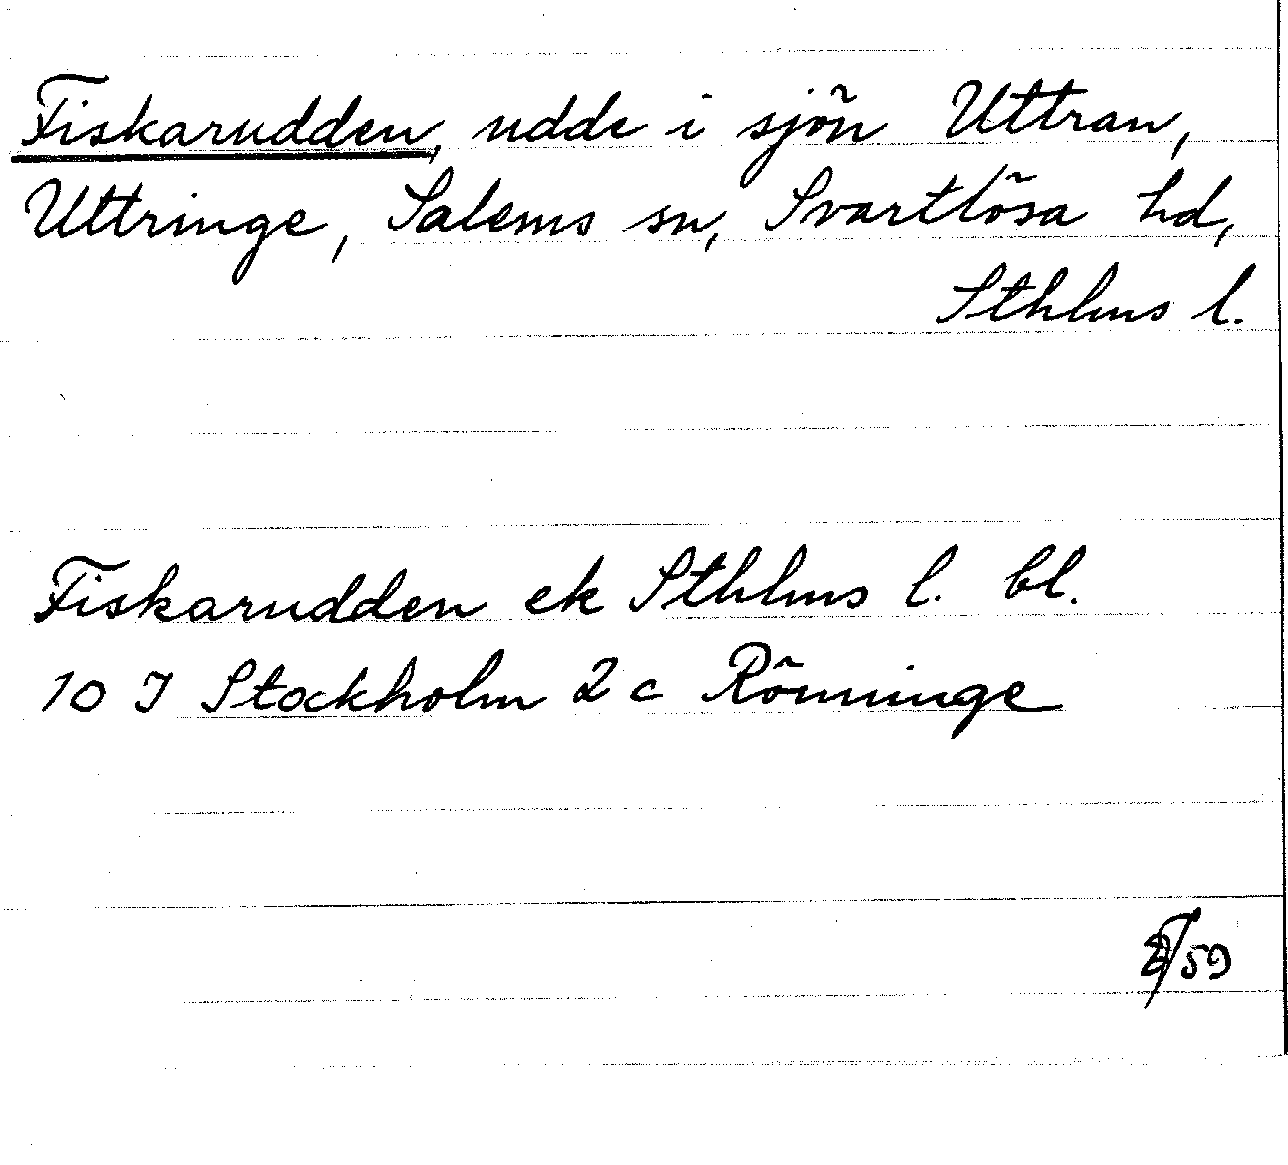 Fiskarudden, udde i sjön Uttran,
Uttringe, Salems sn, Svartlösa hd,
Sthlms l.
Fiskarudden ek Sthlms l. bl.
10 J Stockholm 2 c Rönninge
/59